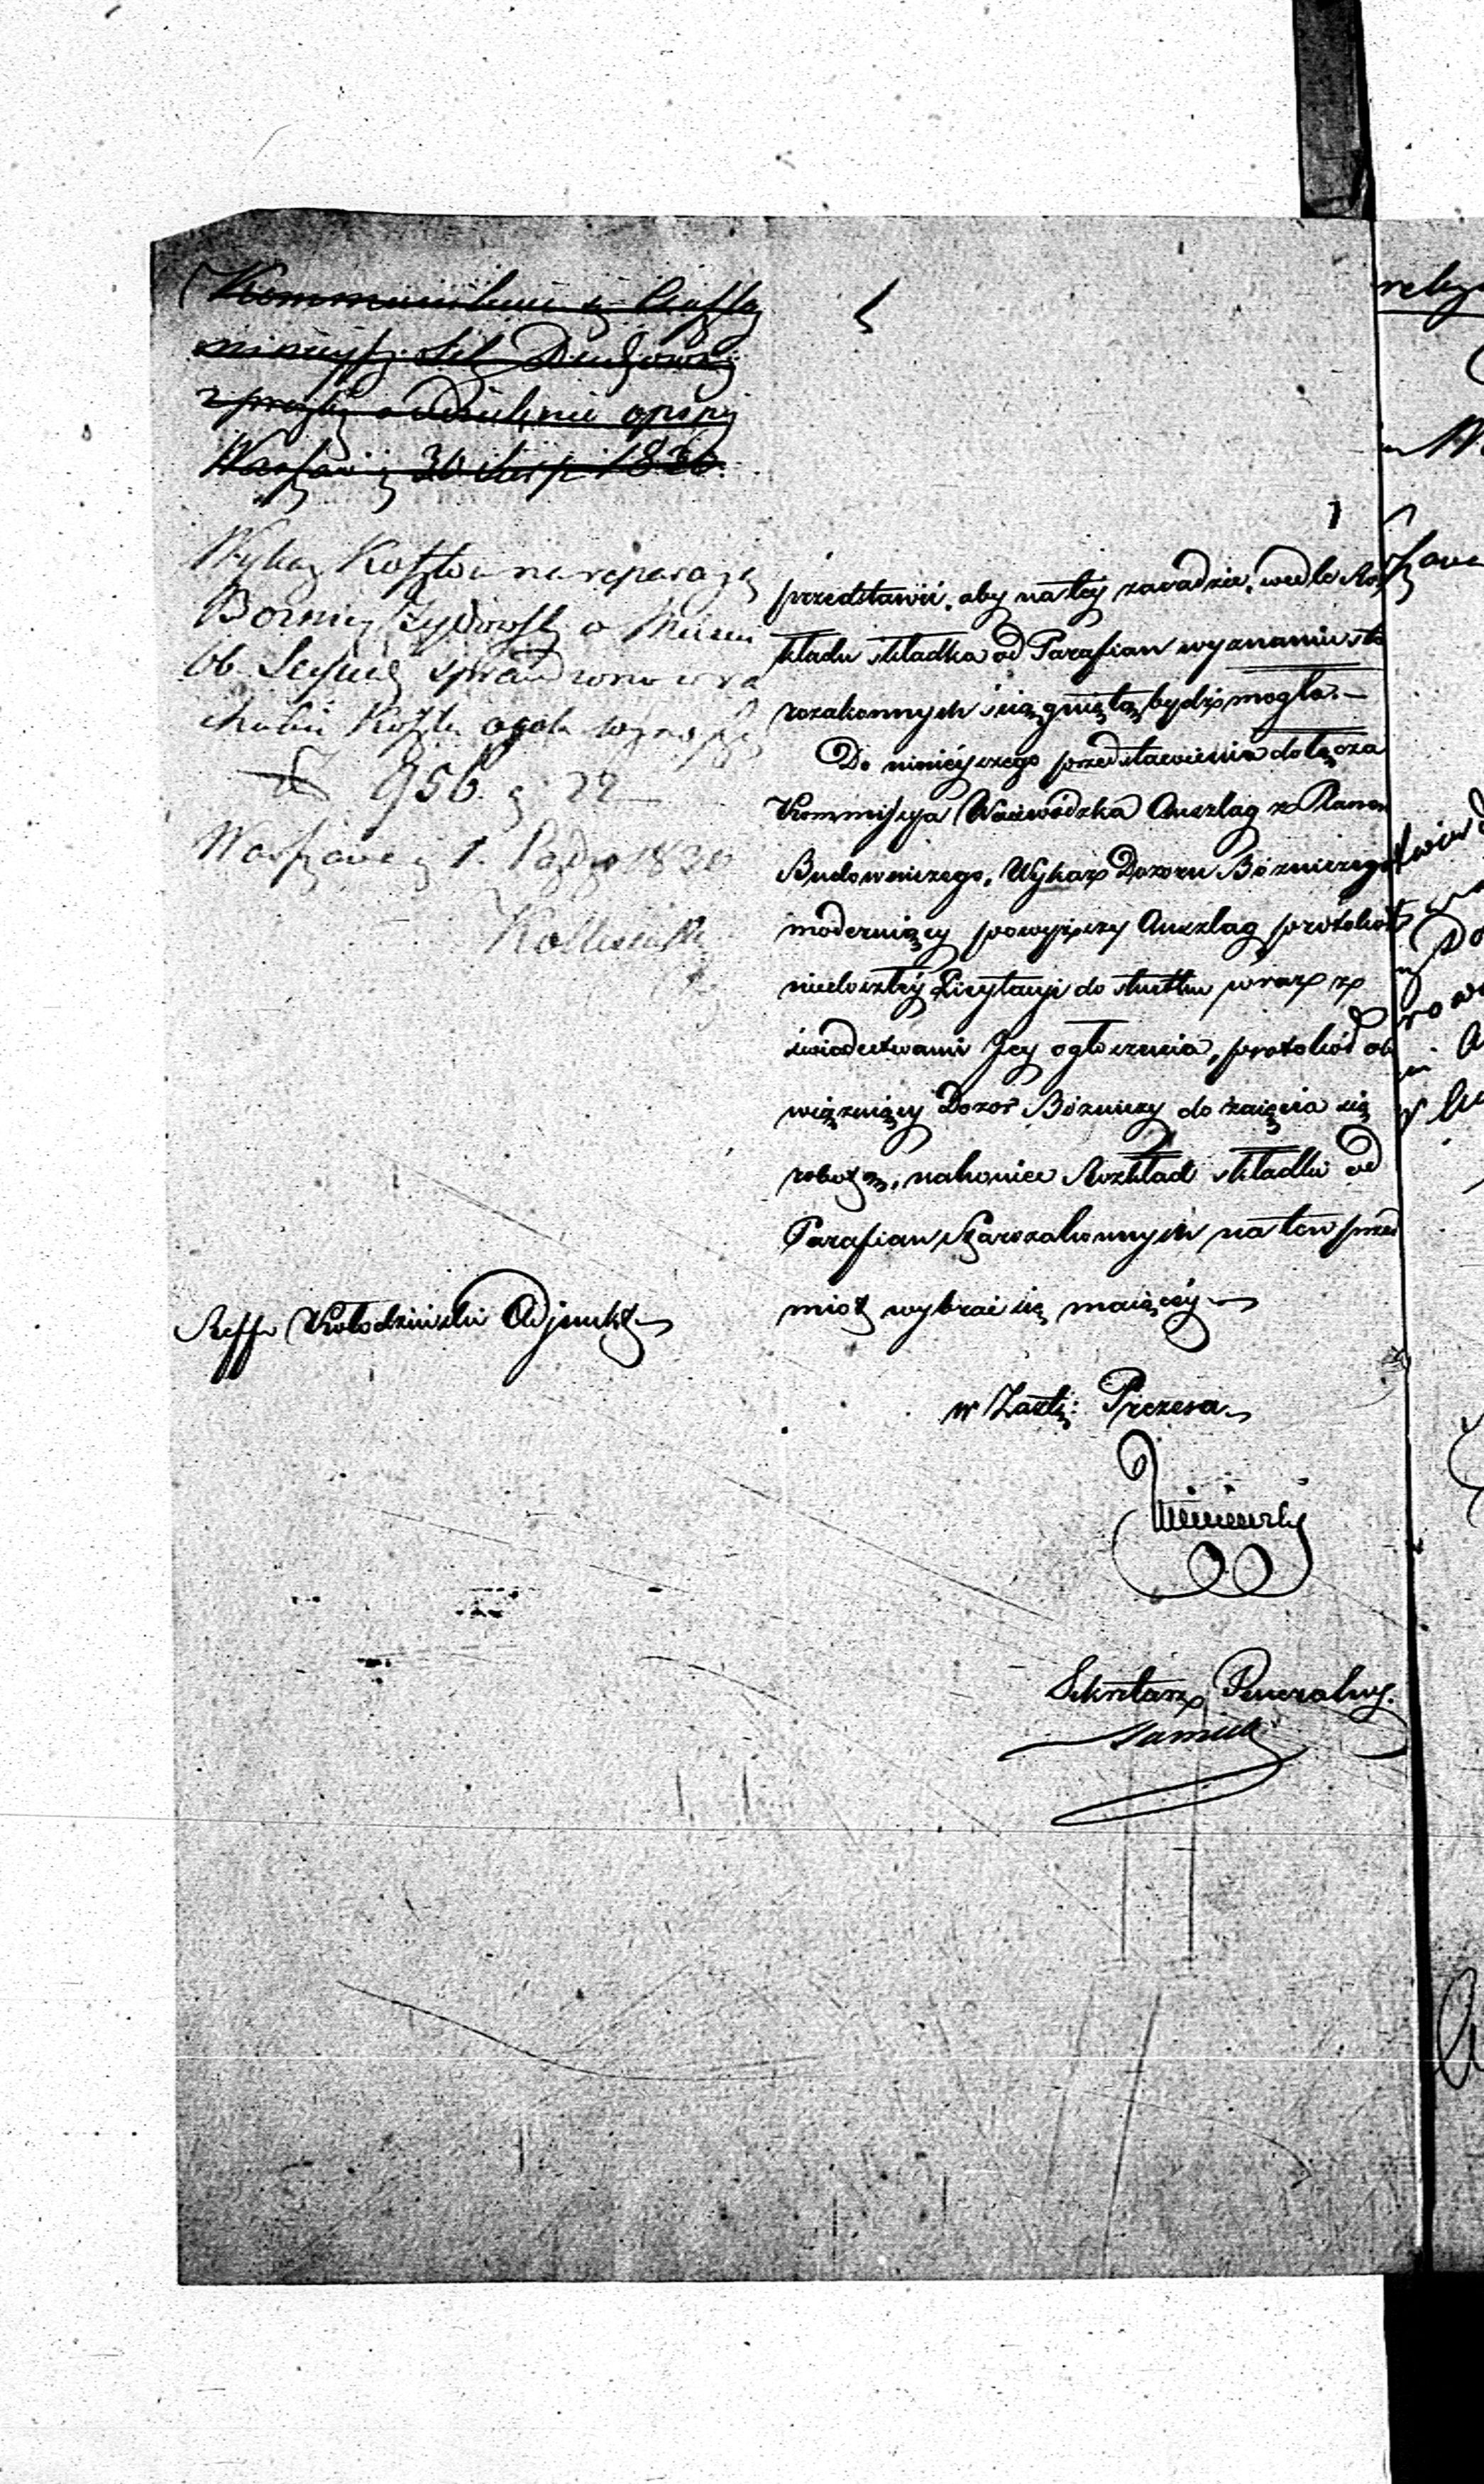 Warszawie 30 Sierp 1830.
Wykaz Kosztów na reperacyę
Bożnicy Żydowsk w Mieście
Ob. sprawdzono w ra
chubie Koszta ogół wynoszą
f 956. g 22
Warszawa d 1. Paźdz 1830
Reff. Kołodziński Adjunkt
przedstawić, aby na tey zasadzie, wedle Roz
kładu składka od Parafian wyznania sta
rozakonnych ściągniętą bydź mogła.—
Do ninieyszego przedstawienia dołącza
Kommissya Woiewódzka Anszlag z Planem
Budowniczego, Wykaz Dozoru Bóżniczego
moderuiący powyższy Anszlag, protokół
niedoszłéy Licytacyi do skutku wraz z
świadectwami Jey ogłoszenia, protokół obo
wiązuiący Dozór Bóżniczy do zaięcia się
robotą, nakoniec Rozkład składki od
Parafian Starozakonnych na ten przed
miot wybrać się maiącéy
w Zastę: Prezesa
Sekretarz Generalny.